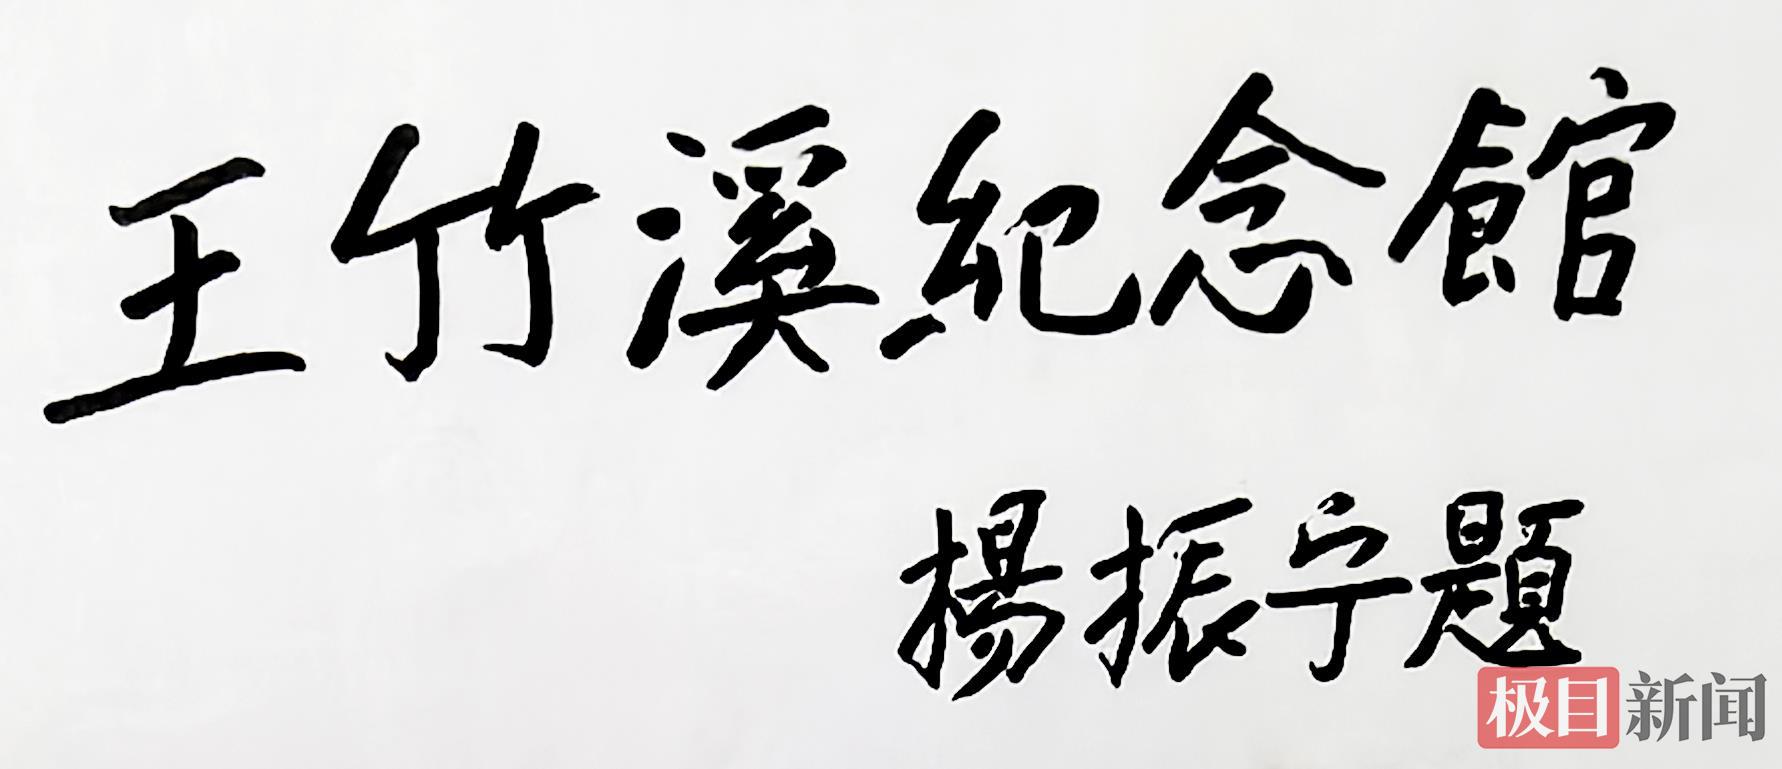 王竹溪紀念館
楊振宁題
极目新闻